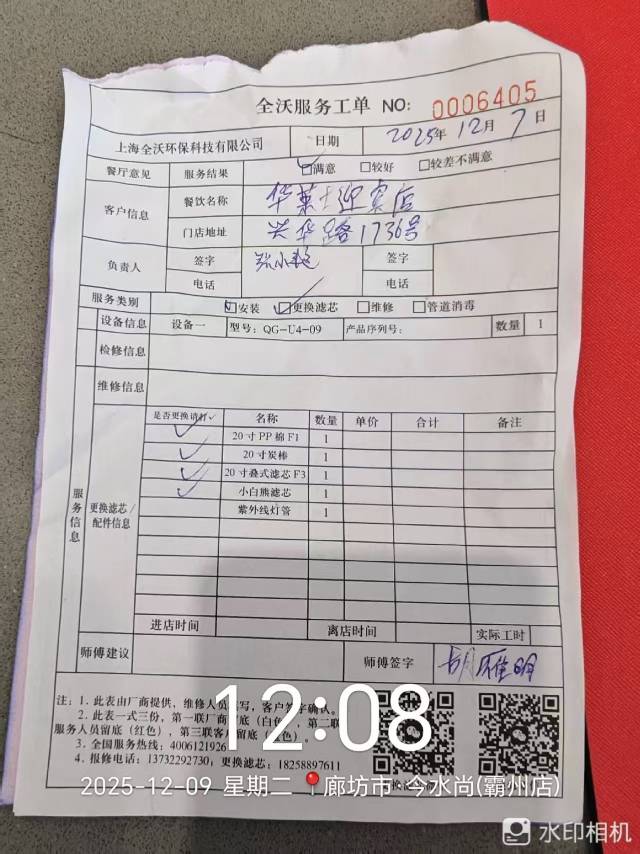 全沃服务工单 NO: 0006405
上海全沃环保科技有限公司 日期 2025年 12月 7日
餐厅意见 服务结果 ☑满意 □较好 □较差不满意
客户信息 餐饮名称 华莱士迎宾店
门店地址 兴华路1736号
负责人 签字 签字
电话 电话
服务类别 ☑安装 ☑更换滤芯 □维修 □管道消毒
设备信息 设备一 型号: QG-U4-09 产品序列号: 数量 1
检修信息
维修信息
服务信息
更换滤芯/配件信息
是否更换请打✓ 名称 数量 单价 合计 备注
✓ 20寸PP棉F1 1
✓ 20寸炭棒 1
✓ 20寸叠式滤芯F3 1
✓ 小白熊滤芯 1
紫外线灯管 1
进店时间 离店时间 实际工时
师傅建议 师傅签字 胡雁明
注: 1. 此表由厂商提供, 维修人员填写, 客户签字确认。
2. 此表一式三份, 第一联厂商留底(白色), 第二联
服务人员留底(红色), 第三联客户留底(黄色)。
3. 全国服务热线: 4006121926
4. 报修电话: 13732292730, 更换滤芯: 18258897611
12:08
2025-12-09 星期二 廊坊市·今水尚(霸州店)
水印相机